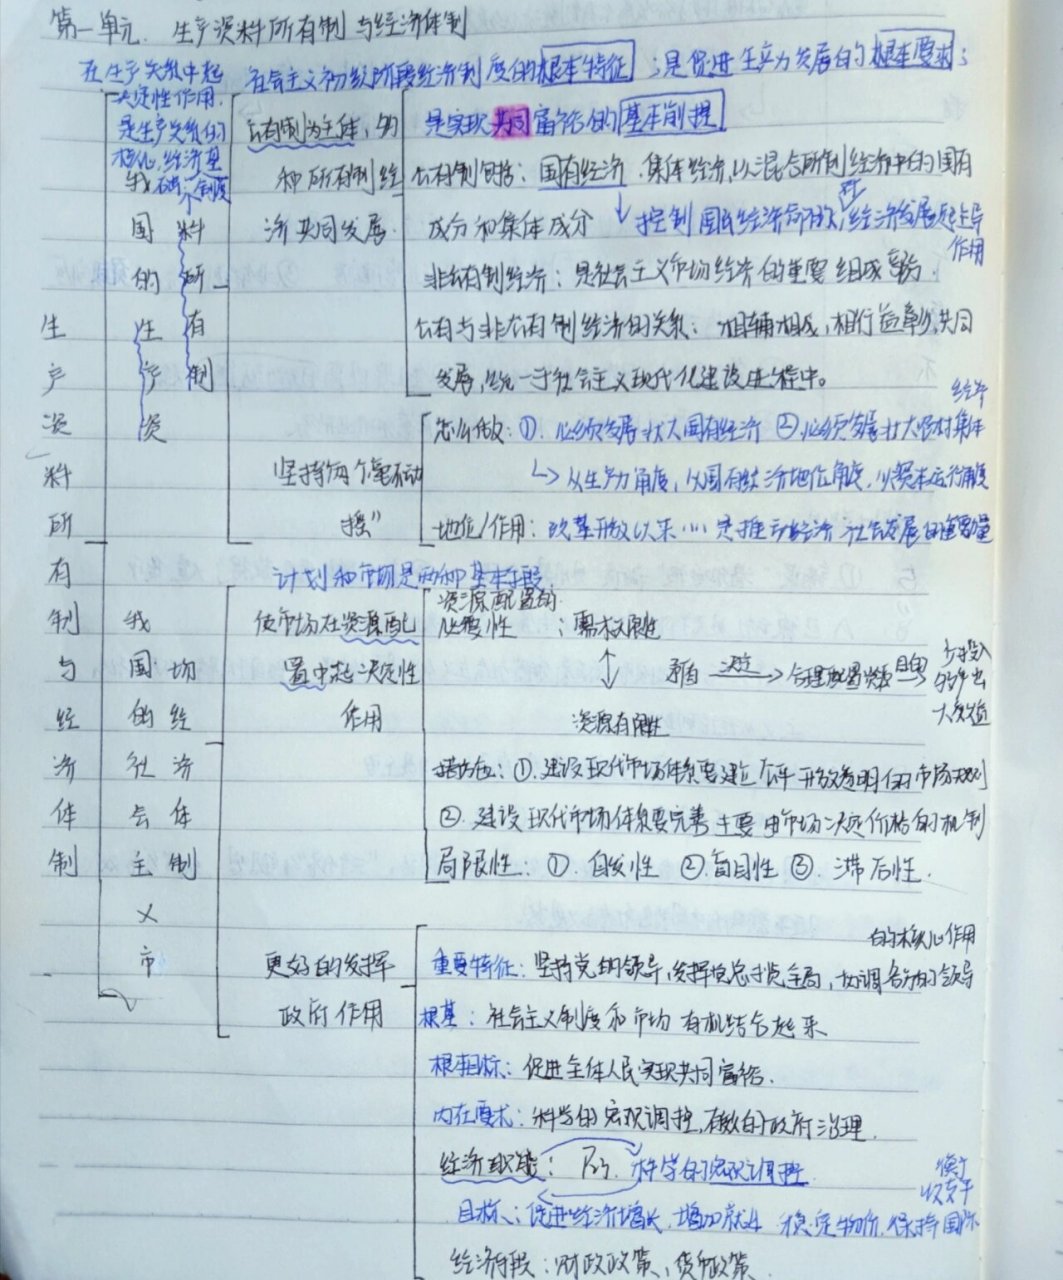 第一单元. 生产资料所有制与经济体制
在生产关系中起
决定性作用.
是生产关系的
核心,经济基
础:制度
社会主义初级阶段经济制度的根本特征;是促进生产力发展的根本要求;
是实现共同富裕的基本前提
生产资料所有制与经济体制
我国的生产资料所有制
公有制为主体,多
种所有制经
济共同发展.
公有制包括:国有经济.集体经济,以混合所有制经济中的国有
成分和集体成分
↓控制国民经济命脉,对经济发展起主导
作用
非公有制经济:是社会主义市场经济的重要组成部分.
公有与非公有制经济的关系:相辅相成,相得益彰,共同
发展,统一于社会主义现代化建设进程中。
坚持"两个毫不动
摇"
怎么做:①.必须发展壮大国有经济②.必须发展壮大农村集体
经济
↳从生产力角度,从国有经济地位角度,从资本运行角度
地位/作用:改革开放以来…是推动经济社会发展的重要力量
我国的社会主义市场经济体制
计划和市场是两种基本手段.
使市场在资源配
置中起决定性
作用
资源配置的
必要性:需求无限性
↕矛盾 决定→合理配置资源 目的→少投入
多产出
大效益
资源有限性
措施:①.建设现代市场体系要建立公平开放透明的市场规则
②.建设现代市场体系要完善主要由市场决定价格的机制
局限性:①.自发性②盲目性③.滞后性.
更好的发挥
政府作用
的核心作用
重要特征:坚持党的领导,发挥党总揽全局,协调各方的领导
根基:社会主义制度和市场有机结合起来
根本目标:促进全体人民实现共同富裕.
内在要求:科学的宏观调控,有效的政府治理.
经济职能: 科学的宏观调控
目标:促进经济增长,增加就业 稳定物价,保持国际
收支平
衡
经济手段:财政政策、货币政策